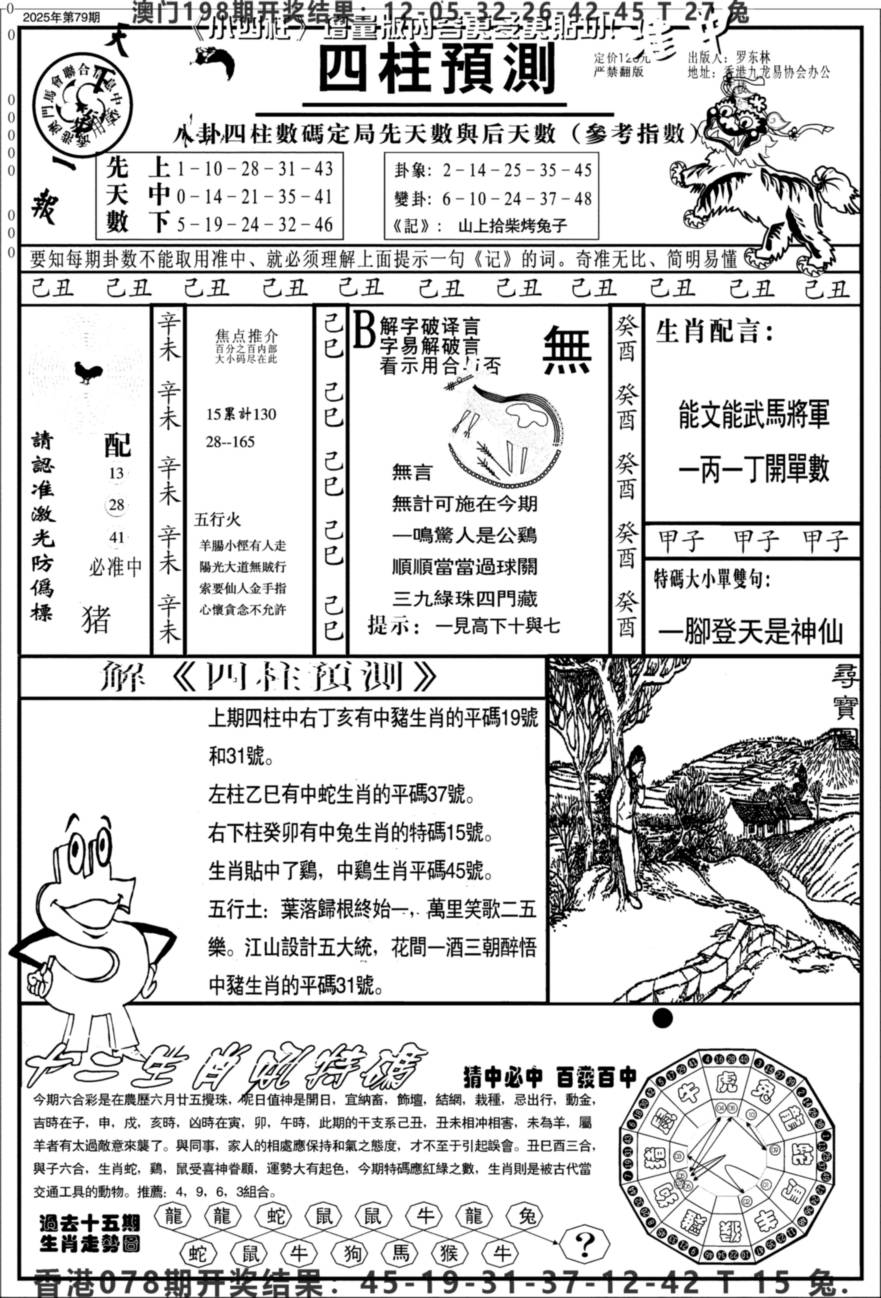 2025年第79期
澳门198期开奖结果：12-05-32-26-42-45 T 27 兔
天
一
報
四柱預測
严禁翻版
出版人：罗东林
地址：香港九龙易协会办公
八卦四柱數碼定局先天數與后天數（參考指數）
先天數
上 1－10－28－31－43
中 0－14－21－35－41
下 5－19－24－32－46
卦象: 2－14－25－35－45
變卦: 6－10－24－37－48
《記》: 山上拾柴烤兔子
要知每期卦数不能取用准中、就必须理解上面提示一句《记》的词。奇准无比、简明易懂
己丑 己丑 己丑 己丑 己丑 己丑 己丑 己丑 己丑 己丑 己丑
請認准激光防偽標
配
13
28
41
必准中
猪
辛未
辛未
辛未
辛未
辛未
焦点推介
百分之百内部
大小码尽在此
15累計130
28--165
五行火
羊腸小徑有人走
陽光大道無贼行
索要仙人金手指
心懷貪念不允許
己巳
己巳
己巳
己巳
己巳
B
解字破译言
字易解破言
看示用合与否
無
無言
無計可施在今期
一鳴驚人是公鷄
順順當當過球關
三九綠珠四門藏
提示: 一見高下十與七
癸酉
癸酉
癸酉
癸酉
癸酉
生肖配言:
能文能武馬將軍
一丙一丁開單數
甲子 甲子 甲子
特碼大小單雙句:
一腳登天是神仙
解《四柱預測》
上期四柱中右丁亥有中豬生肖的平碼19號
和31號。
左柱乙巳有中蛇生肖的平碼37號。
右下柱癸卯有中兔生肖的特碼15號。
生肖貼中了鷄，中鷄生肖平碼45號。
五行土: 葉落歸根終始一，萬里笑歌二五
樂。江山設計五大統，花間一酒三朝醉悟
中豬生肖的平碼31號。
尋寶圖
猜中必中 百發百中
今期六合彩是在農歷六月廿五攪珠，呢日值神是開日，宜納畜，飾壇，結網，栽種，忌出行，動金，
吉時在子，申，戌，亥時，凶時在寅，卯，午時，此期的干支系己丑，丑未相冲相害，未為羊，屬
羊者有太過敵意來襲了。與同事，家人的相處應保持和氣之態度，才不至于引起誤會。丑巳酉三合，
與子六合，生肖蛇，鷄，鼠受喜神眷顧，運勢大有起色，今期特碼應紅綠之數，生肖則是被古代當
交通工具的動物。推薦: 4，9，6，3組合。
過去十五期
生肖走勢圖
龍 龍 蛇 鼠 鼠 牛 龍 兔
蛇 鼠 牛 狗 馬 猴 牛 ?
香港078期开奖结果：45-19-31-37-12-42 T 15 兔.